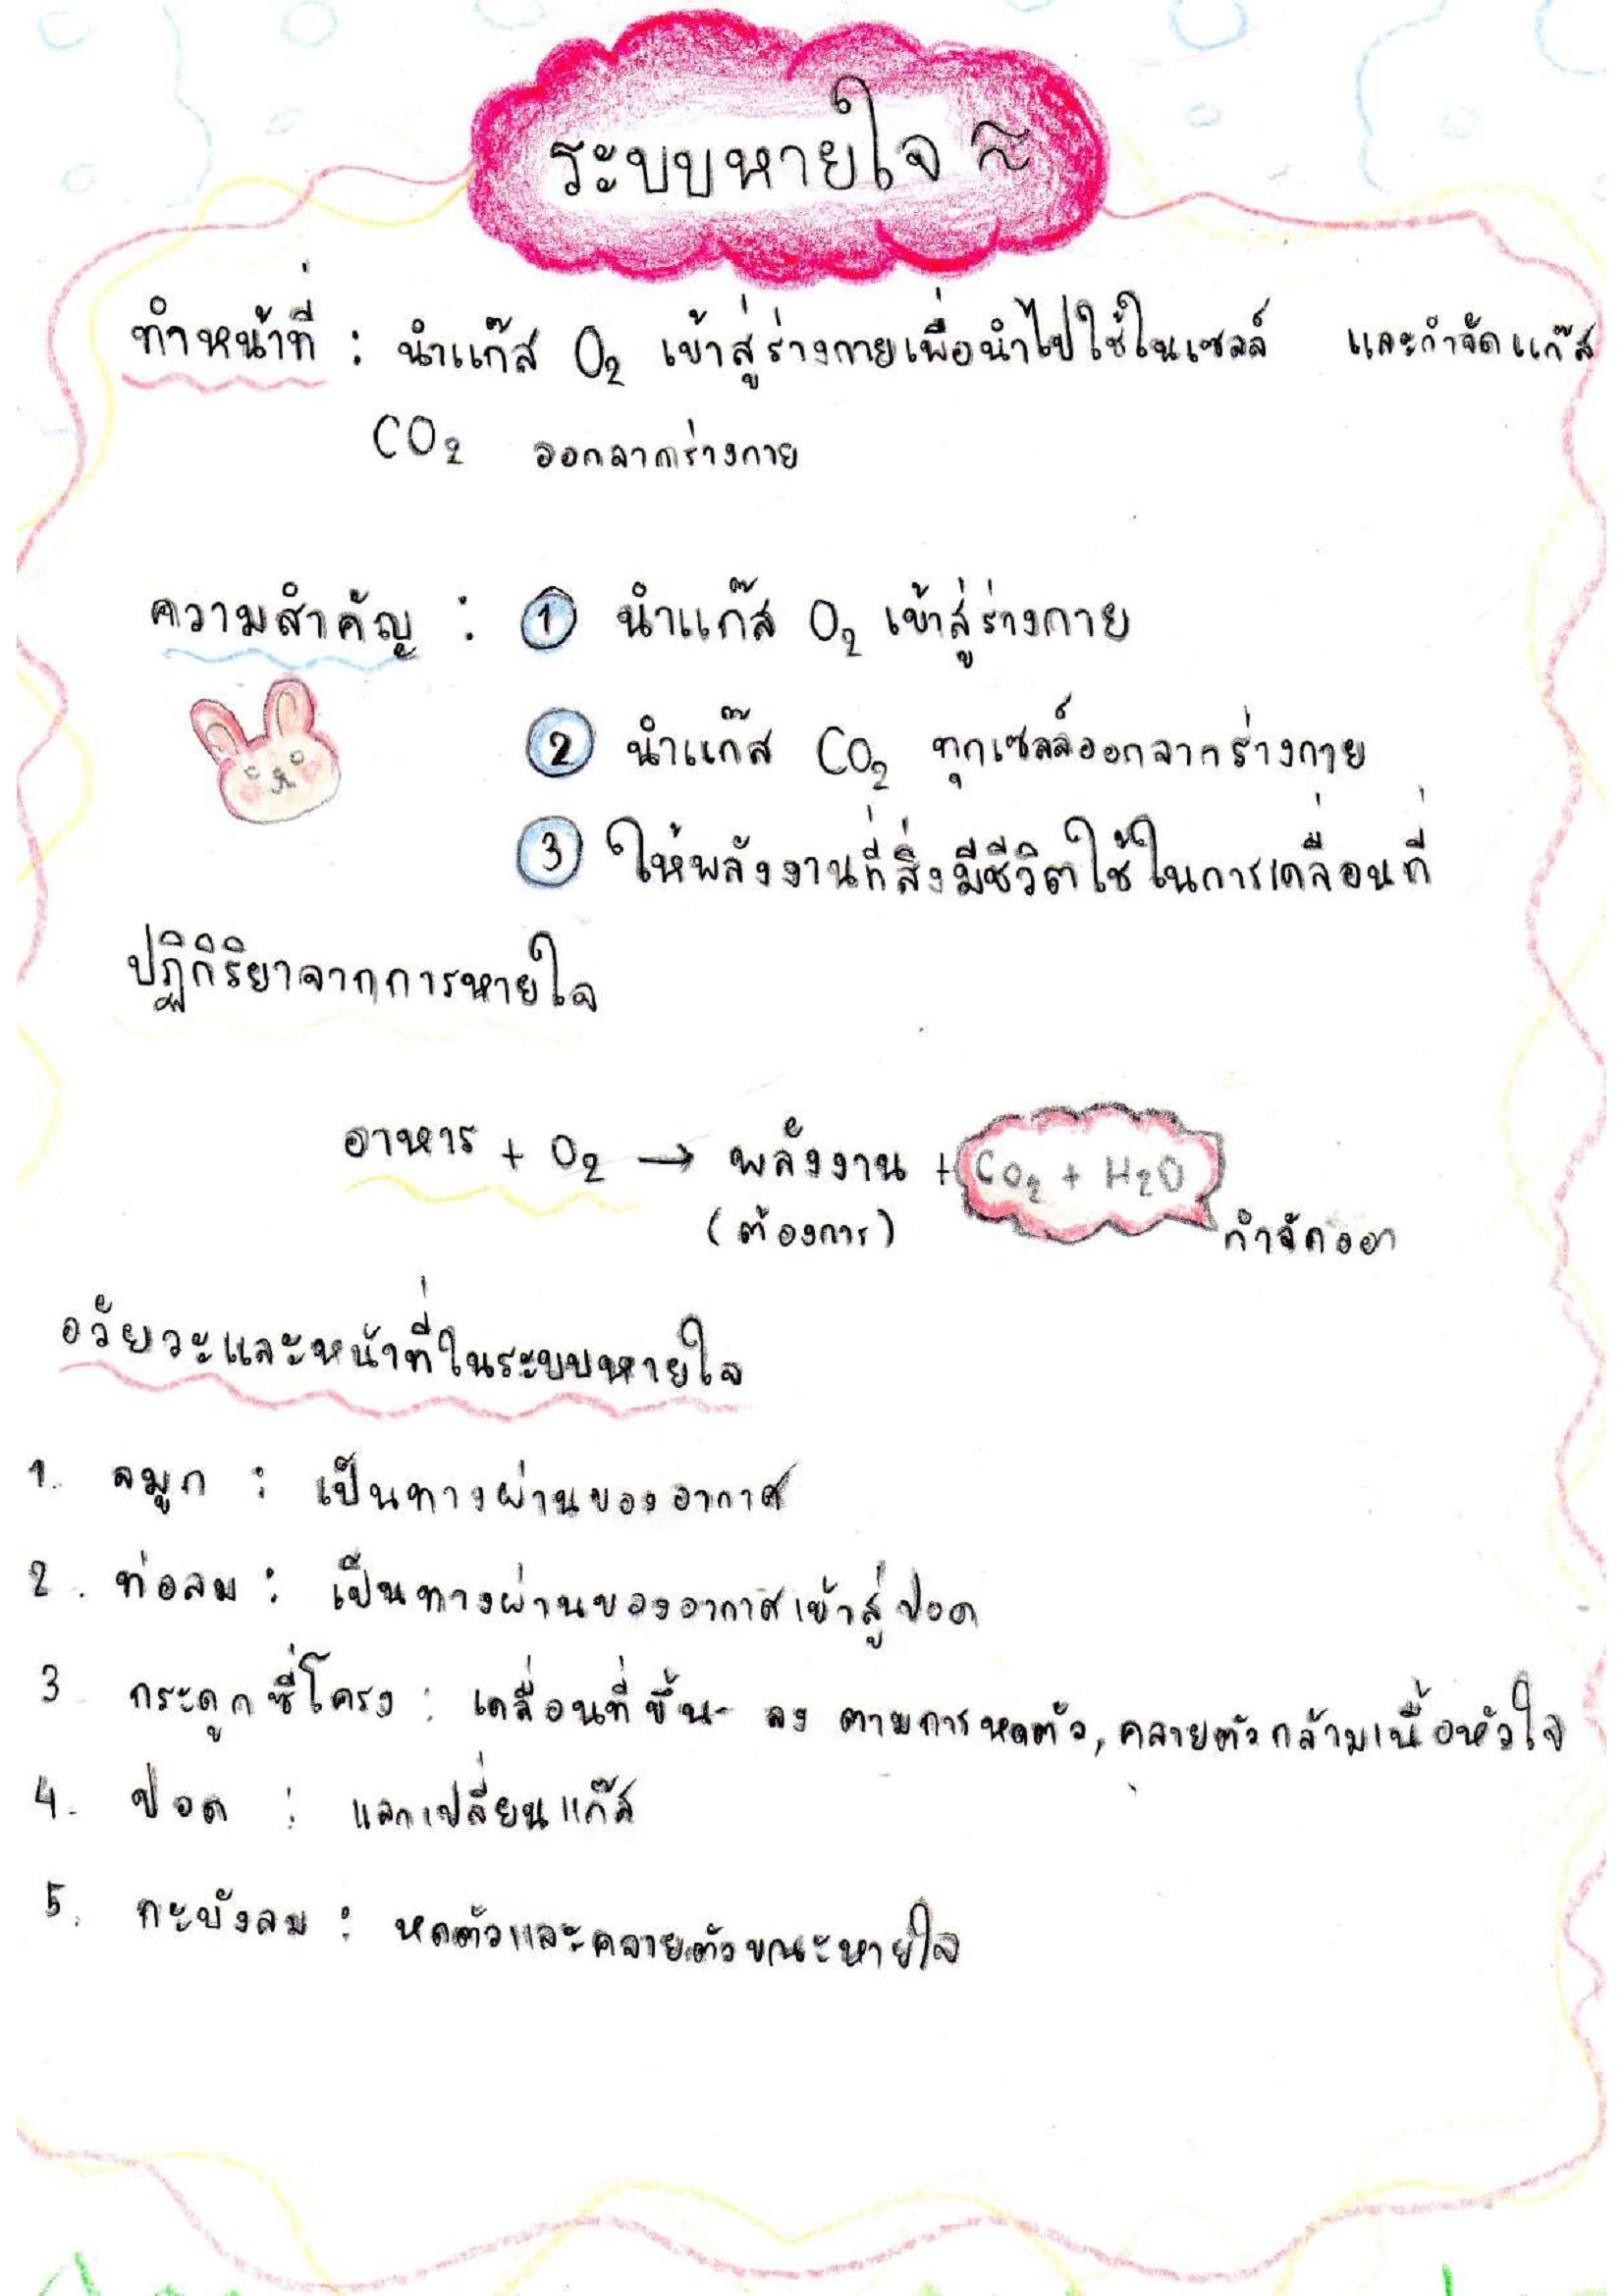 ระบบหายใจ ~
ทำหน้าที่ : นำแก๊ส O₂ เข้าสู่ร่างกายเพื่อนำไปใช้ในเซลล์ และกำจัดแก๊ส
CO₂ ออกจากร่างกาย
ความสำคัญ : ① นำแก๊ส O₂ เข้าสู่ร่างกาย
② นำแก๊ส CO₂ ทุกเซลล์ออกจากร่างกาย
③ ให้พลังงานที่สิ่งมีชีวิตใช้ในการเคลื่อนที่
ปฏิกิริยาจากการหายใจ
อาหาร + O₂ → พลังงาน + CO₂ + H₂O
(ต้องการ) กำจัดออก
อวัยวะและหน้าที่ในระบบหายใจ
1. จมูก : เป็นทางผ่านของอากาศ
2. ท่อลม : เป็นทางผ่านของอากาศเข้าสู่ปอด
3. กระดูกซี่โครง : เคลื่อนที่ขึ้น- ลง ตามการหดตัว, คลายตัวกล้ามเนื้อหัวใจ
4. ปอด : แลกเปลี่ยนแก๊ส
5. กะบังลม : หดตัวและคลายตัวขณะหายใจ